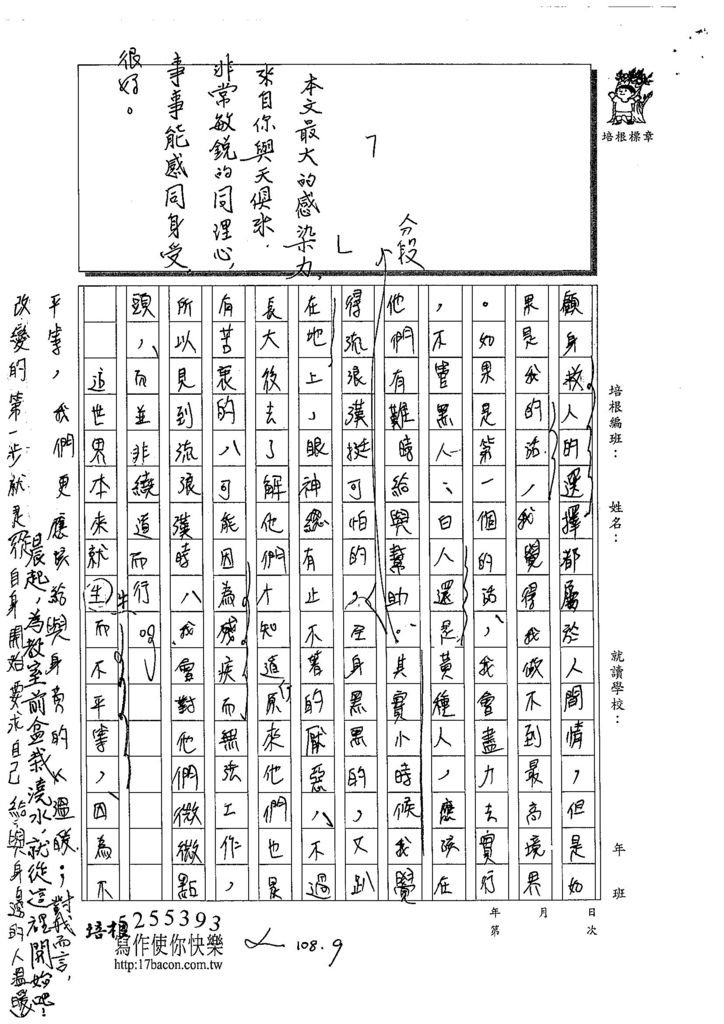 培根標章
本文最大的感染力,
來自你與天俱來.
非常敏銳的同理心,
事事能感同身受,
很好。
分段
培根編班：
姓名：
就讀學校：
年 班
顧身救人的選擇都屬於人間情，但是如
果是我的話，我覺得我做不到最高境界
。如果是第一個的話，我會盡力去實行
，不管黑人、白人還是黃種人，應該在
他們有難時給與幫助。其實小時候我覺
得流浪漢挺可怕的，全身黑黑的，又趴
在地上，眼神總有止不著的厭惡，不過
長大後去了解他們才知道原來他們也是
有苦衷的，可能因為殘疾而無法工作，
所以見到流浪漢時，我會對他們微微點
頭，而並非繞道而行。
這世界本來就生而不平等，因為不
平等，我們更應該給與身旁的人溫暖；對我而言，
改變的第一步就是從自身開始要求自己給與身邊的人溫暖
晨起，為教室前盆栽澆水，就從這裡開始吧！
日 月 年
次 第
培根 5255393
寫作使你快樂
http:/17bacon.com.tw
108.9